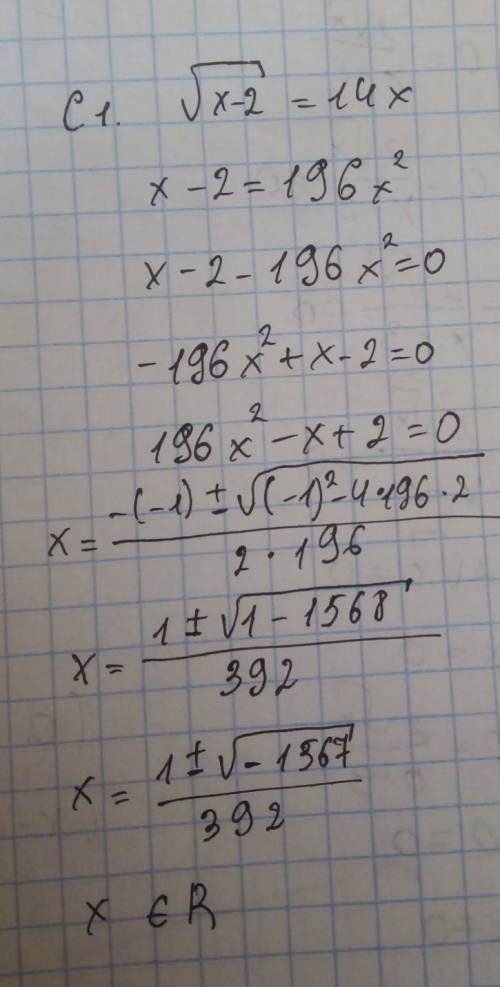 C1. √(x-2) = 14x
x - 2 = 196x²
x - 2 - 196x² = 0
-196x² + x - 2 = 0
196x² - x + 2 = 0
x = (-(-1) ± √((-1)² - 4·196·2)) / (2·196)
x = (1 ± √(1 - 1568)) / 392
x = (1 ± √(-1567)) / 392
x ∈ R